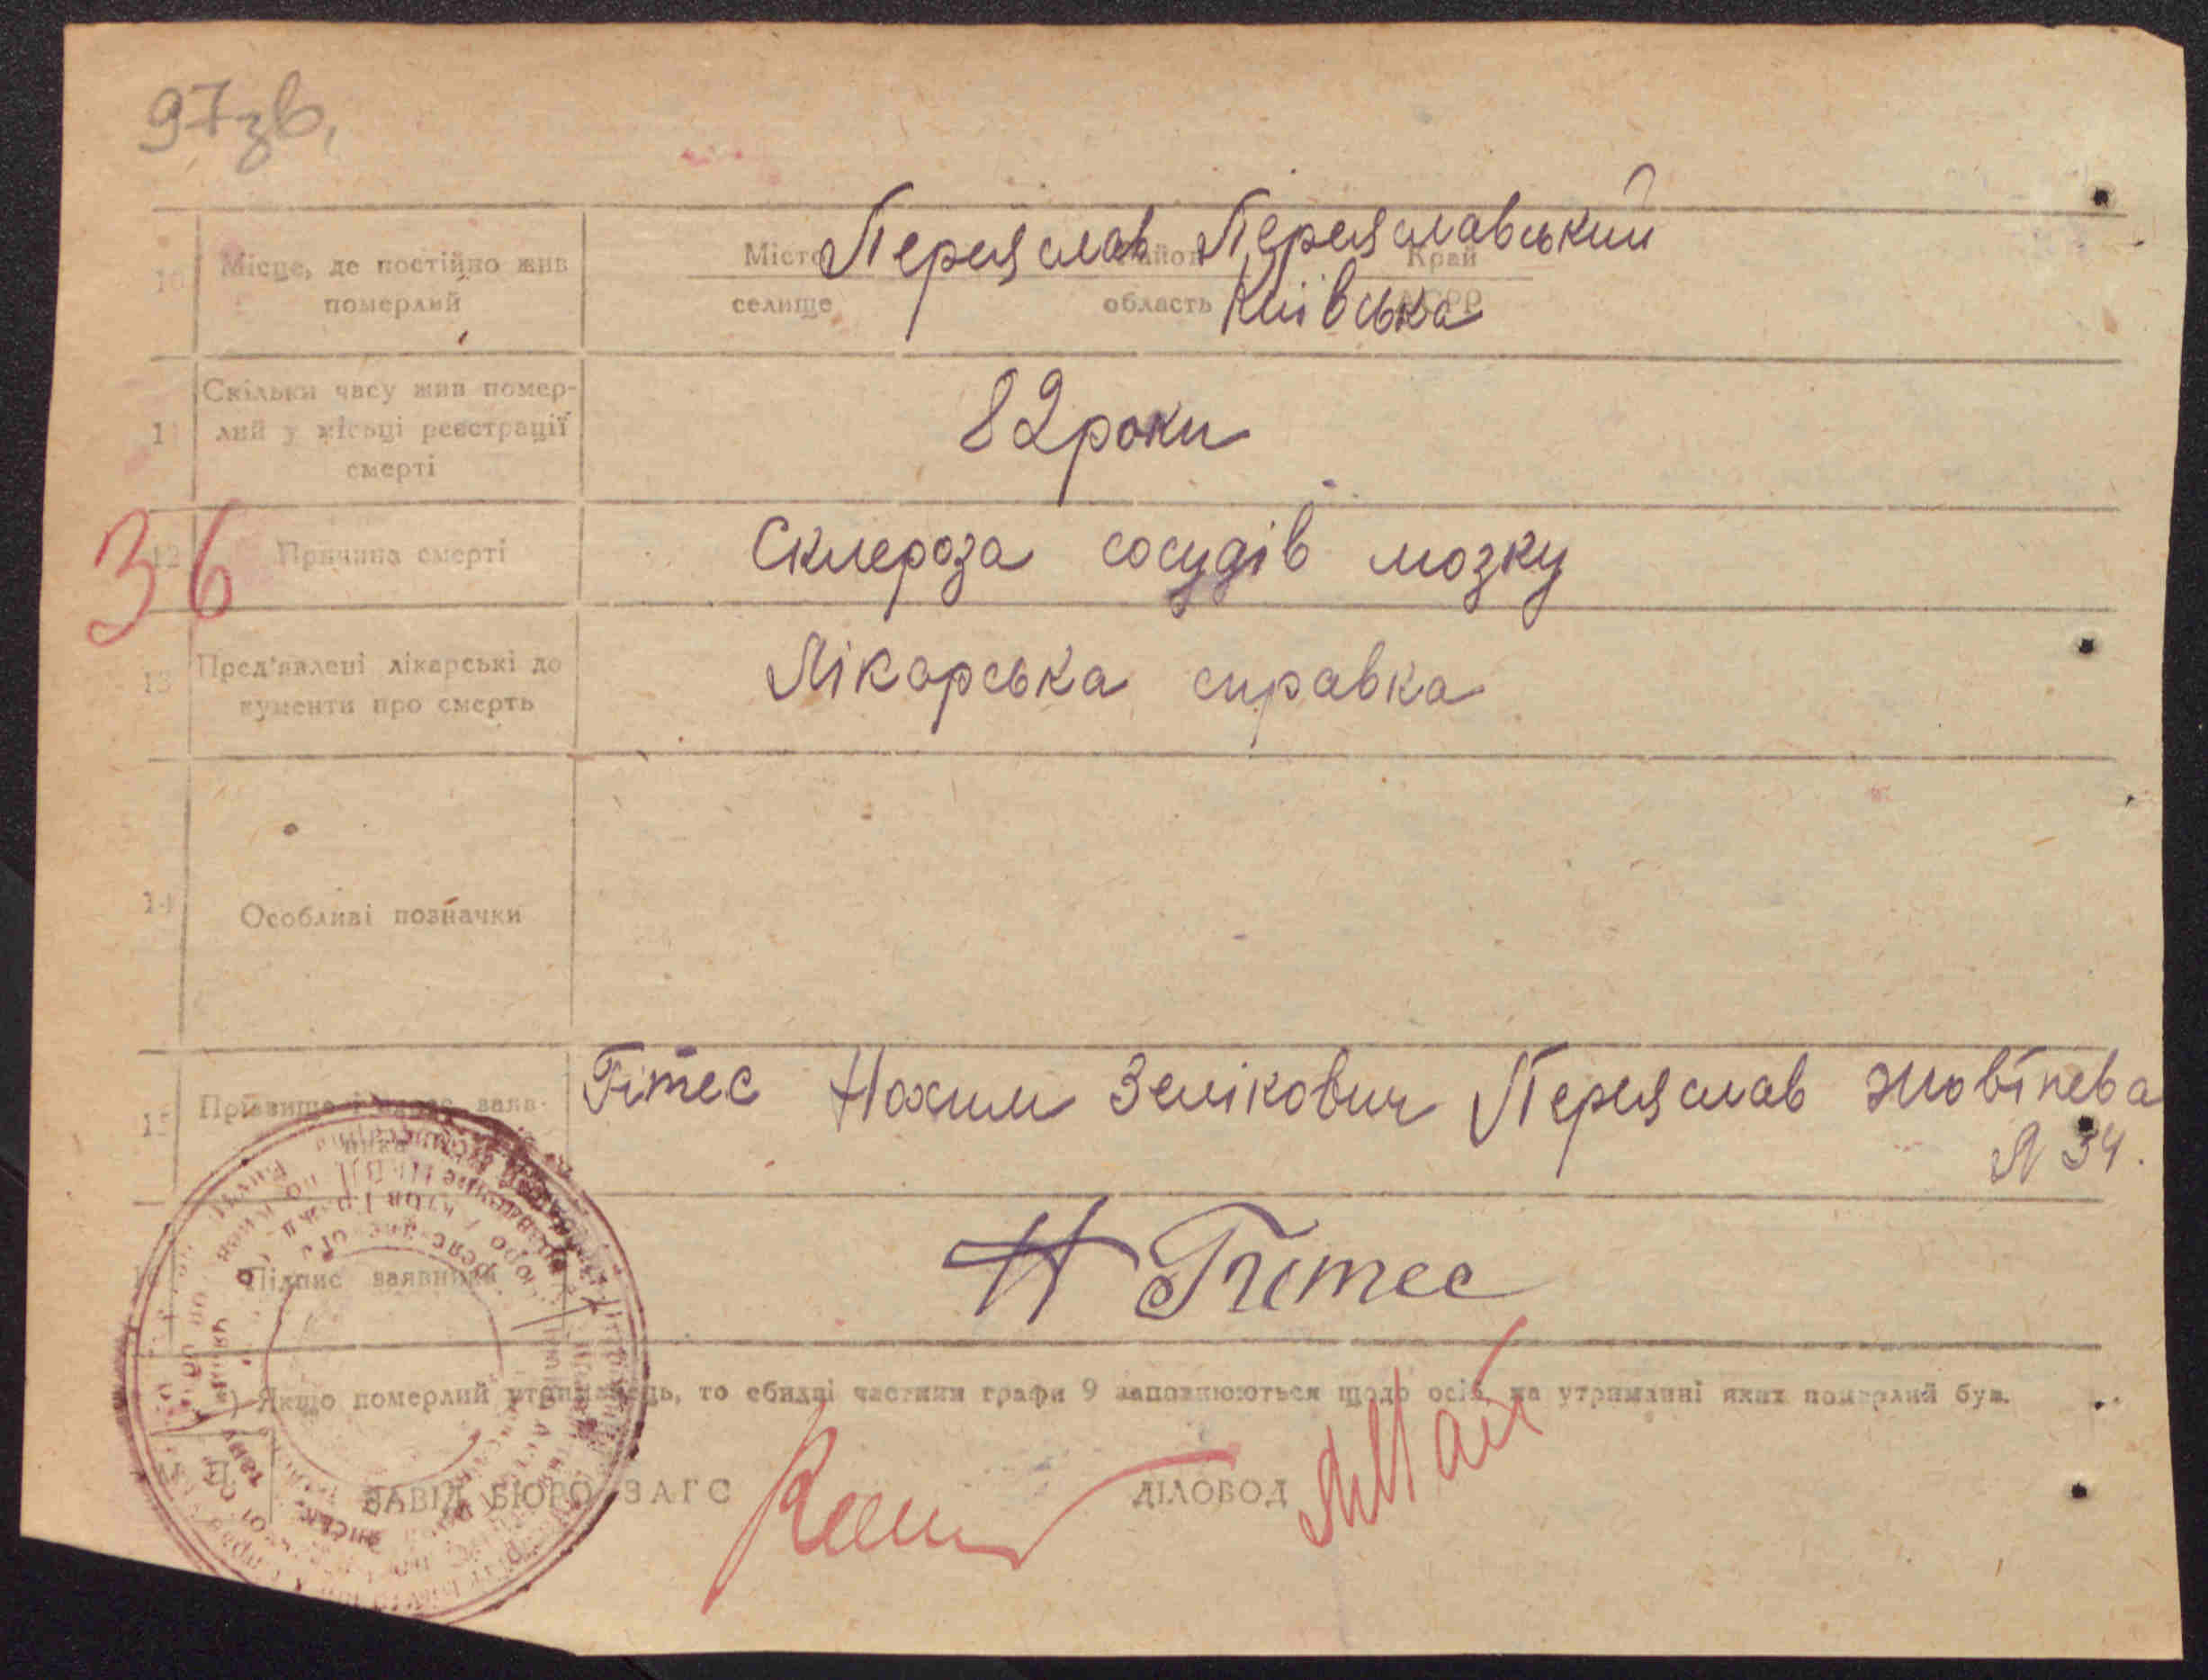 97зв.
10 Місце, де постійно жив померлий
Місто Переяслав район Переяславський Край
селище область Київська АСРР
11 Скільки часу жив помер-
лий у місьці реєстрації
смерті
82 роки
36
12 Причина смерті
Склероза сосудів мозку
13 Пред'явлені лікарські до
кументи про смерть
Лікарська справка
14 Особливі позначки
15 Прізвище і адрес заяв-
ника
Гітес Нохим Зелікович Переяслав Жовтнева
№ 34.
16 Підпис заявника
Н Гитес
) Якщо померлий утриманець, то обидві частини графи 9 заповнюються щодо осіб, на утриманні яких померлий був.
М. П.
ЗАВІД. БЮРО ЗАГС
ДІЛОВОД